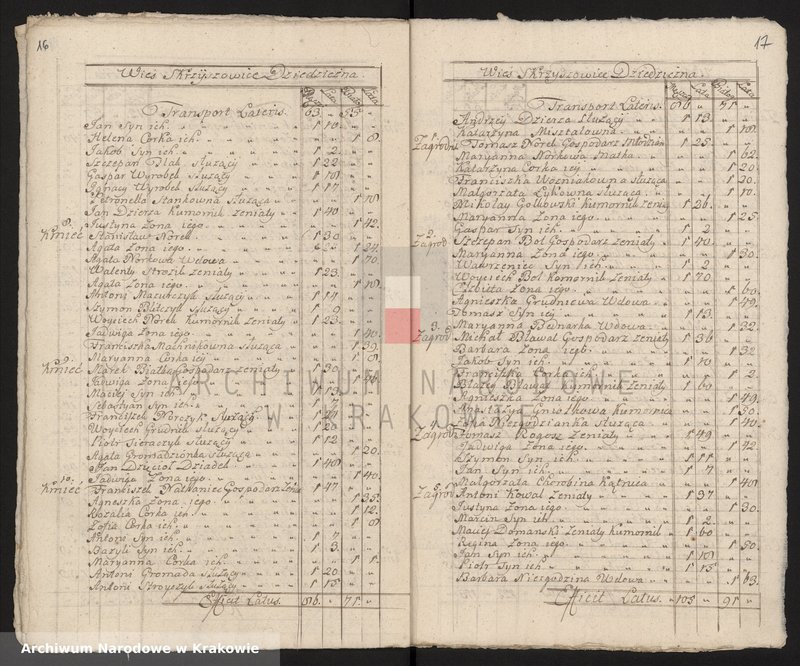 16
Wieś Skrzyszowice Dziedziczna.
Transport Lateris. 63 " 55 "
Jan Syn ich 1 10
Helena Corka ich 1 8
Jakob Syn ich 1 2
Szczepan Ptak Służący 1 22
Gaspar Wyrobek Służący 1 18
Ignacy Wyrobek Służący 1 17
Petronella Stankowna Służąca 1 18
Jan Dzierza Kumornik żeniaty 1 40
Justyna Zona iego 1 42
8. Kmieć Stanisław Norek 1 30
Agata Zona iego 1 24
Agata Norkowa Wdowa 1 70
Walenty Stroził żeniaty 1 23
Agata Zona iego 1 18
Antoni Mazurczyk Służący 1 14
Szymon Służący 1 9
Woyciech Norek Kumornik żeniaty 1 25
Jadwiga Zona iego 1 40
Franciszka Machnikowna Służąca 1 39
Maryanna Corka icy 1 8
9. Kmieć Marek Białka Gospodarz żeniaty 1 30
Jadwiga Zona iego 1 26
Maciey Syn ich 1 13
Sebastyan Syn ich 1 7
Franciszek Norczyk Służący 1 24
Woyciech Grudnik Służący 1 20
Piotr Sieraczyk Służący 1 12
Agata Gromadzionka Służąca 1 20
Jan Dziadek 1 48
Jadwiga Zona iego 1 40
10. Kmieć Franciszek Nathaniec Gospodarz żeniaty 1 47
Agnieszka Zona iego 1 35
Rozalia Corka ich 1 12
Zofia Corka ich 1 8
Antoni Syn ich 1 7
Bazyli Syn ich 1 3
Maryanna Corka ich 1 1
Antoni Gromada Służący 1 20
Antoni Służący 1 15
Efficit Latus. 86 " 71 "
17
Wieś Skrzyszowice Dziedziczna.
Transport Lateris. 86 " 71 "
Andrzey Dzierza Służący 1 13
Katarzyna Misztalowna 1 18
1. Zagrodn Tomasz Norek Gospodarz Młodzian 1 25
Maryanna Norkowa Matka 1 62
Katarzyna Corka icy 1 20
Franciszka Wozniakowna Służąca 1 30
Małgorzata Łykowna Służąca 1 17
Mikołay Gołkowski Kumornik żeniaty 1 26
Maryanna Zona iego 1 25
Gaspar Syn ich 1 2
2. Zagrod Szczepan Bol Gospodarz żeniaty 1 40
Maryanna Zona iego 1 30
Wawrzeniec Syn ich 1 2
Woyciech Bol Kumornik żeniaty 1 70
Elzbieta Zona iego 1 60
Agnieszka Grudniewa Wdowa 1 49
Tomasz Syn icy 1 13
Maryanna Bednarka Wdowa 1 32
3. Zagrod Michał Bławat Gospodarz żeniaty 1 36
Barbara Zona iego 1 32
Jakob Syn ich 1 10
Franciszka Corka ich 1 2
Błazey Bławat Kumornik żeniaty 1 60
Agnieszka Zona iego 1 49
Anastazya Kumornica 1 30
Służąca 1 40
4. Zagrodn Tomasz Rogosz żeniaty 1 49
Jadwiga Zona iego 1 42
Szymon Syn ich 1 11
Jan Syn ich 1 7
Małgorzata Chorobina Kątnica 1 48
5. Zagrod Antoni Kowal żeniaty 1 37
Justyna Zona iego 1 30
Marcin Syn ich 1 2
Maciey Domanski żeniaty Kumornik 1 60
Regina Zona iego 1 50
Jan Syn ich 1 18
Piotr Syn ich 1 15
Barbara Niezgodzina Wdowa 1 63
Efficit Latus. 105 " 91 "
ARCHIWUM NARODOWE
W KRAKOWIE
Archiwum Narodowe w Krakowie